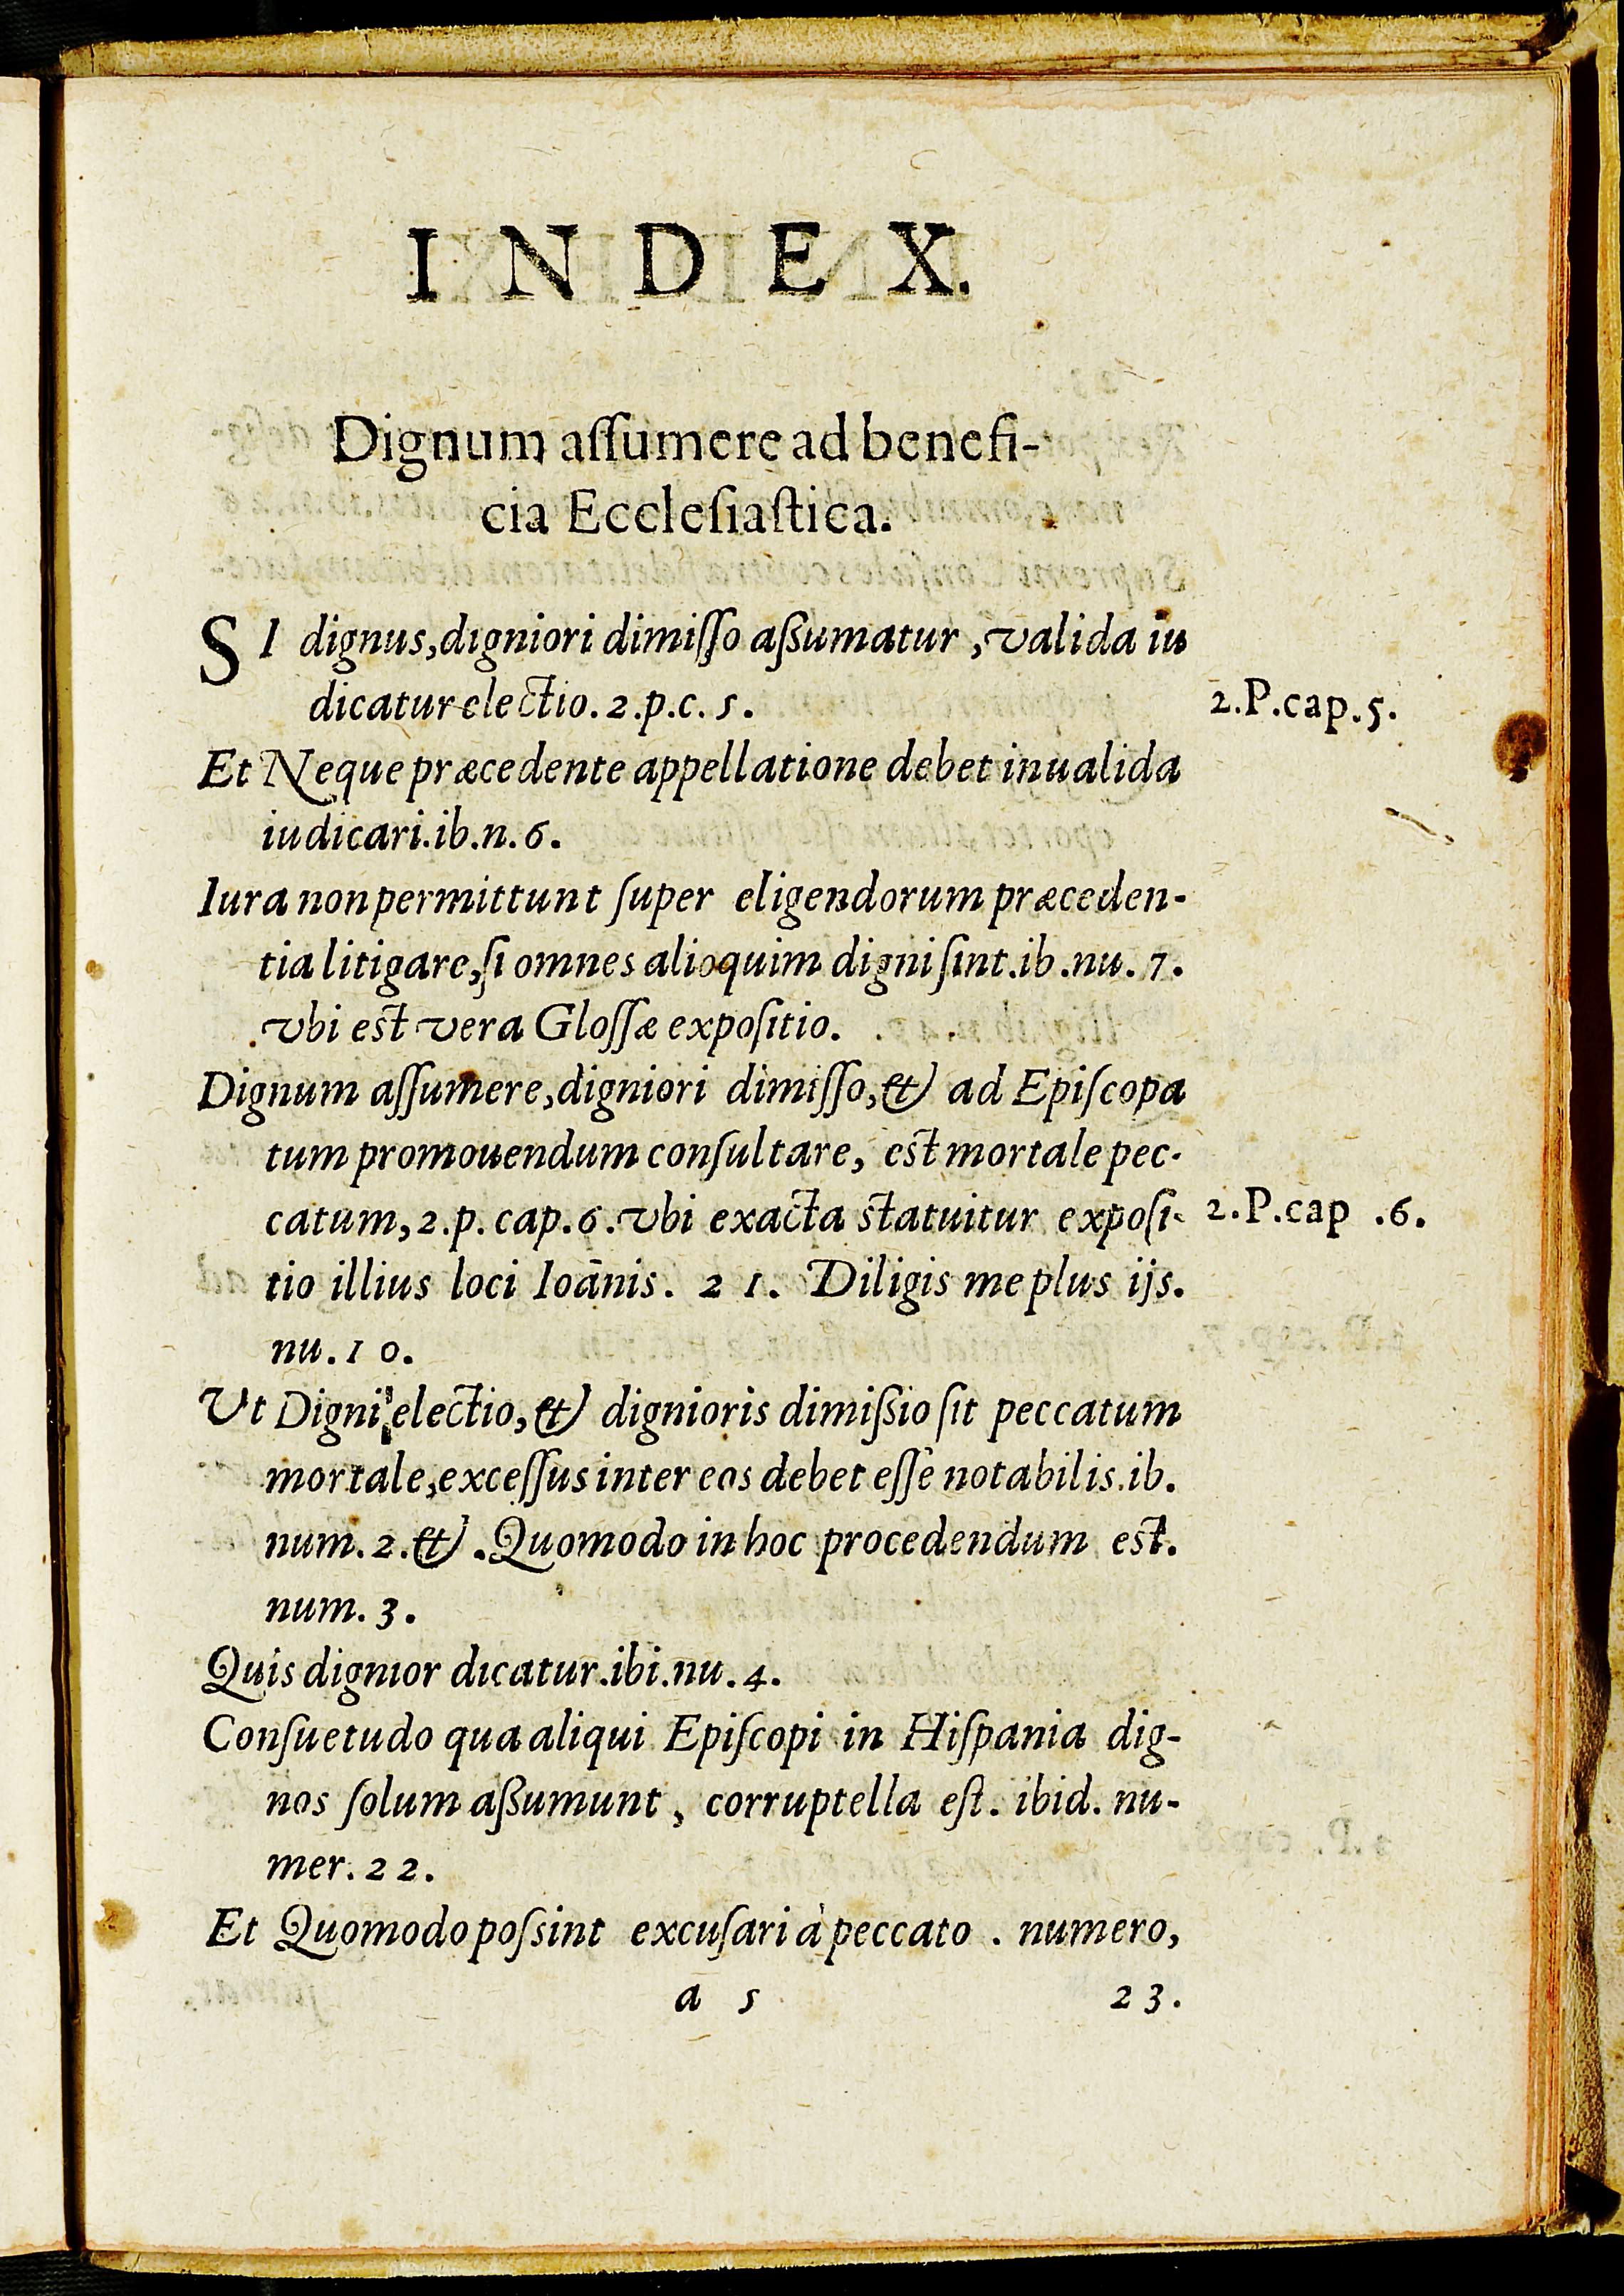 INDEX.
Dignum aſſumere ad benefi-
cia Eccleſiaſtica.
SI dignus, digniori dimiſſo aſsumatur, valida iu
dicatur electio. 2.p.c. 5.
2.P.cap.5.
Et Neque præcedente appellatione debet inualida
iudicari.ib.n.6.
Iura non permittunt ſuper eligendorum præceden-
tia litigare, ſi omnes alioquim digni ſint.ib.nu.7.
vbi est vera Gloſſæ expoſitio.
Dignum aſſumere, digniori dimiſſo, & ad Epiſcopa
tum promouendum conſultare, est mortale pec-
catum, 2.p. cap.6. vbi exacta statuitur expoſi-
2.P.cap .6.
tio illius loci Ioānis. 21. Diligis me plus ijs.
nu.10.
Vt Digni electio, & dignioris dimiſsio ſit peccatum
mortale, exceſſus inter eos debet eſſe notabilis.ib.
num.2.&.Quomodo in hoc procedendum est.
num.3.
Quis dignior dicatur.ibi.nu.4.
Conſuetudo qua aliqui Epiſcopi in Hiſpania dig-
nos ſolum aſsumunt, corruptella eſt. ibid. nu-
mer.22.
Et Quomodo poſsint excuſari à peccato . numero,
a 5
23.